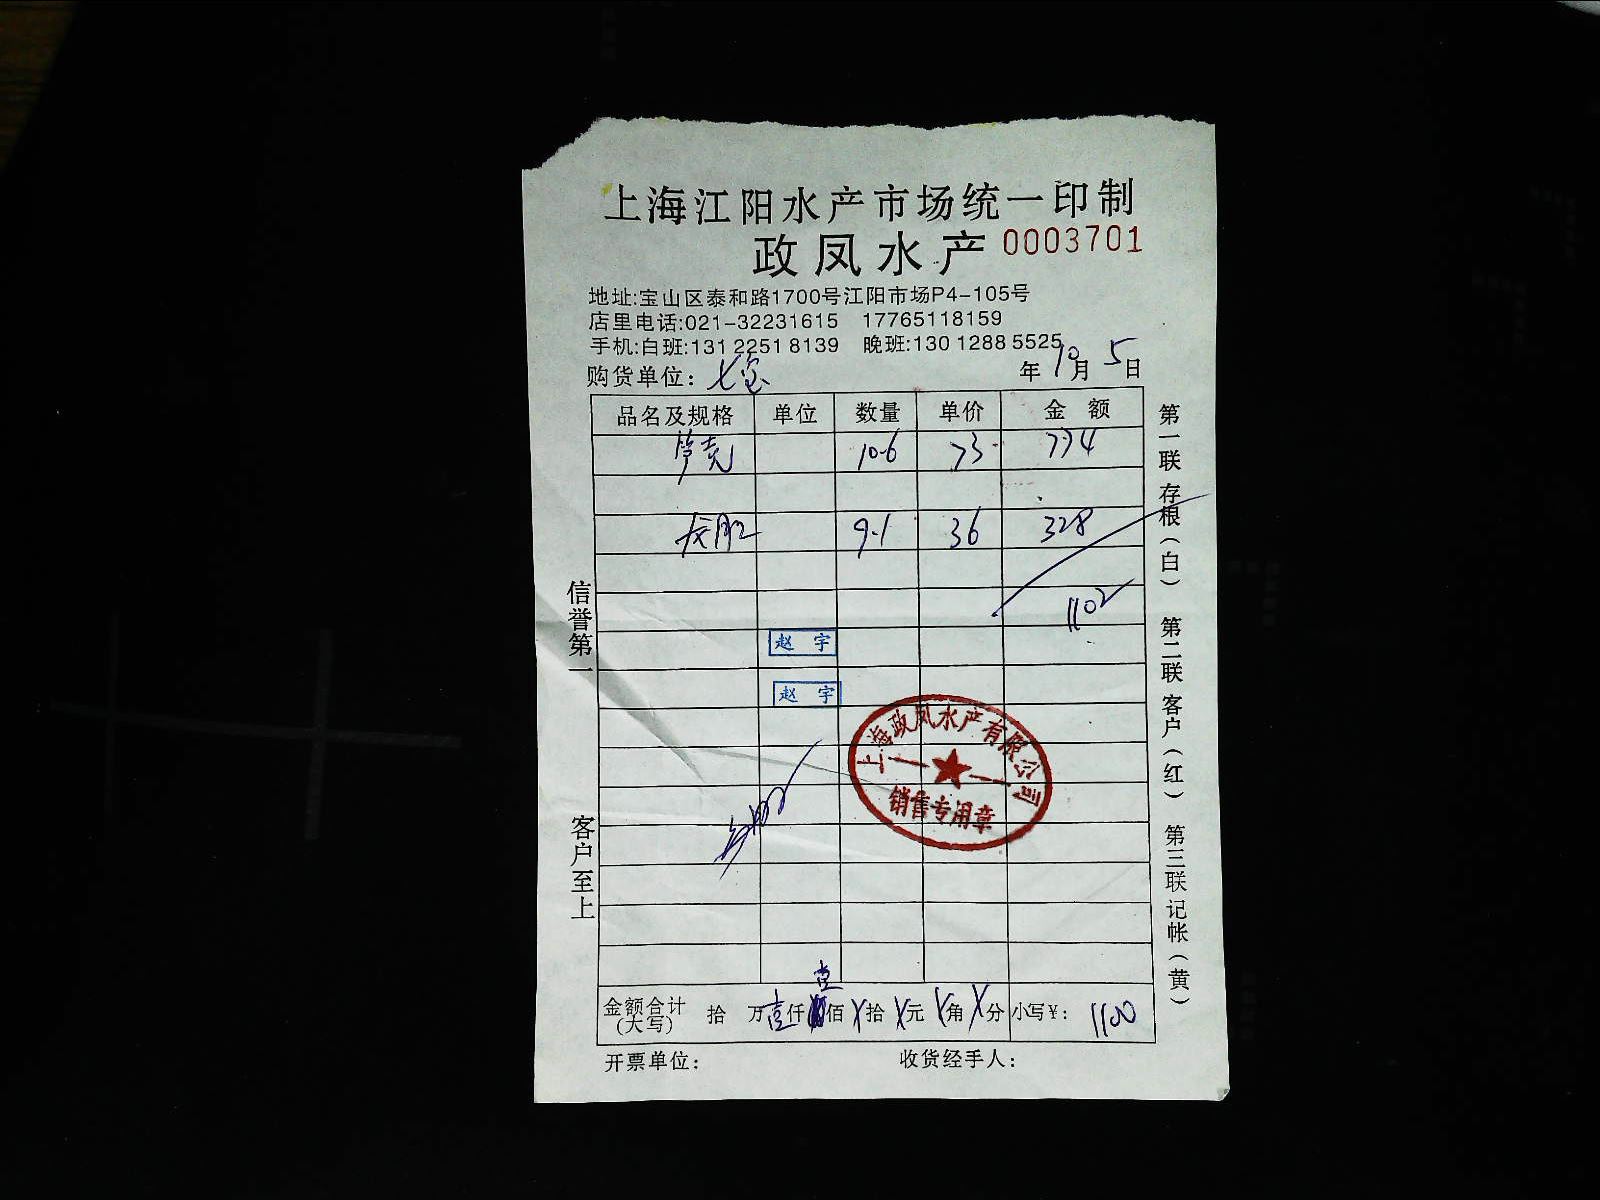 上海江阳水产市场统一印制
政凤水产 0003701
地址:宝山区泰和路1700号江阳市场P4-105号
店里电话:021-32231615 17765118159
手机:白班:131 2251 8139 晚班:130 1288 5525
购货单位: 七宝 年10月5日
品名及规格 单位 数量 单价 金额
笋壳 10.6 73 774
龙胆 9.1 36 328
1102
赵宇
赵宇
上海政凤水产有限公司
销售专用章
金额合计(大写) 拾 万壹仟壹佰 拾 元 角 分 小写¥: 1100
开票单位: 收货经手人:
信誉第一
客户至上
第一联存根(白) 第二联客户(红) 第三联记帐(黄)